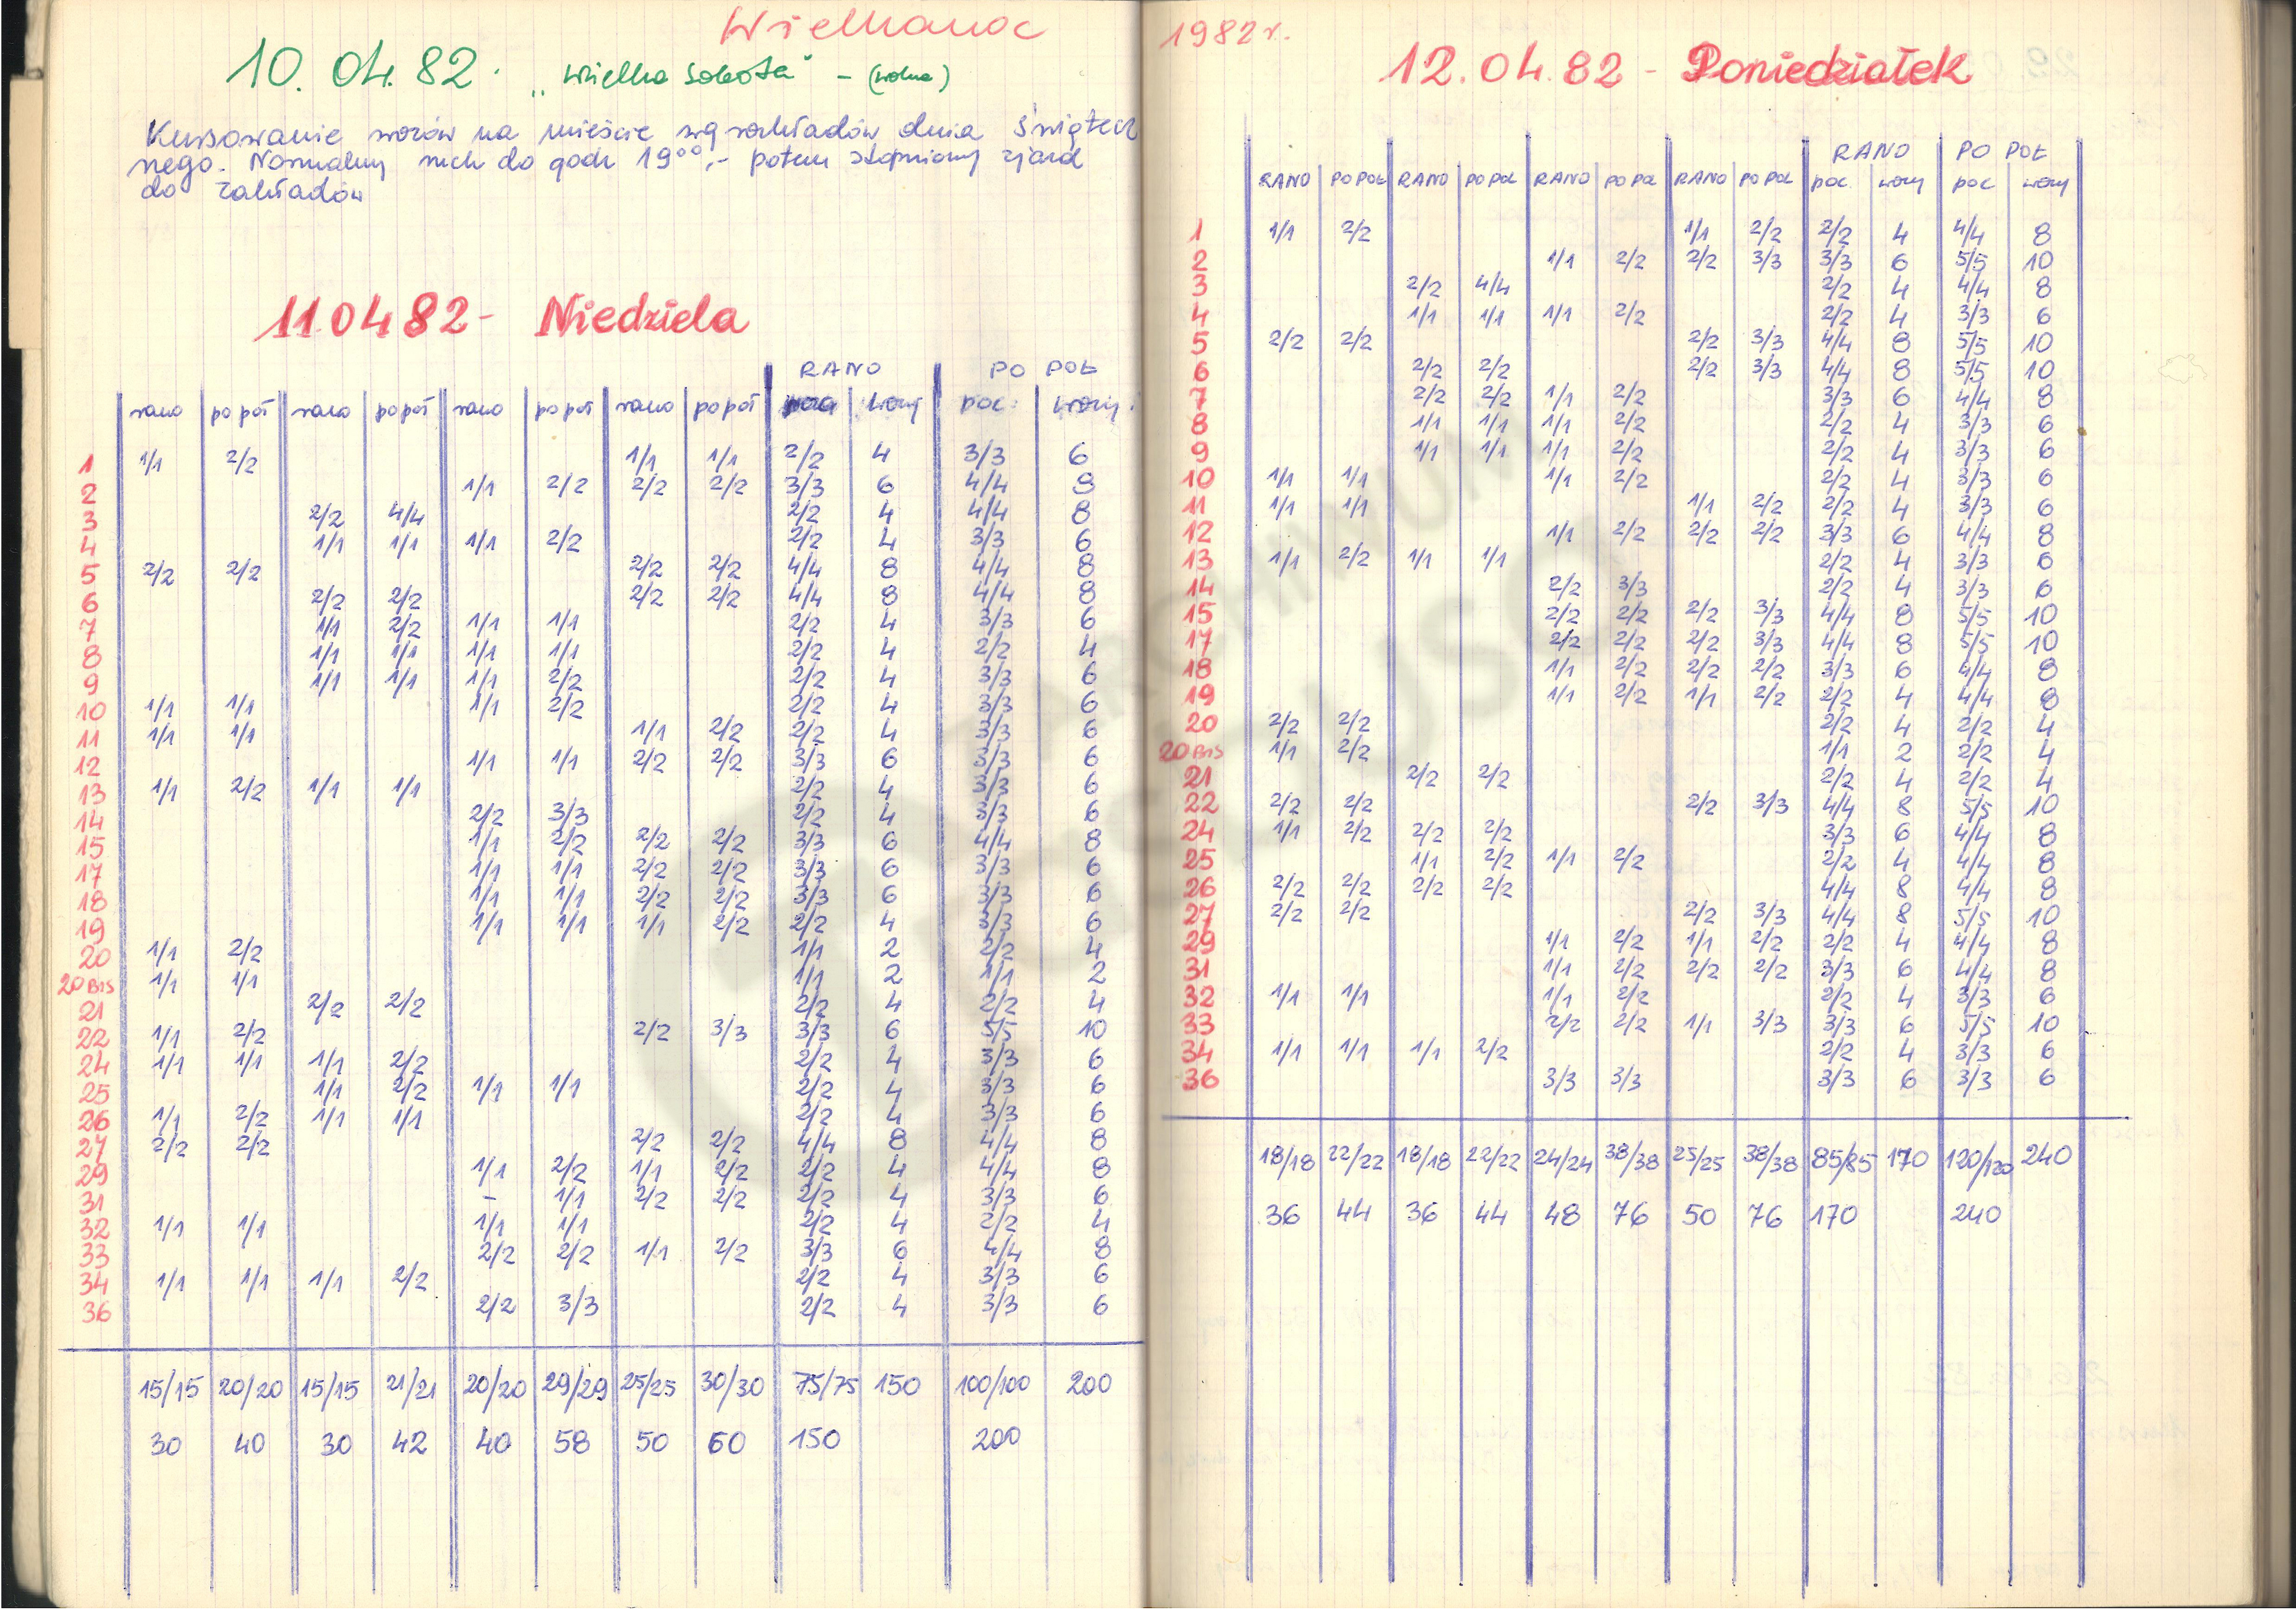 Wielkanoc
10.04.82. „Wielka Sobota" - (wolna)
Kursowanie wozów na mieście wg rozkładów dnia świątecz
nego. Normalny ruch do godz 19⁰⁰,- potem stopniowy zjazd
do zakładów
11.04 82 - Niedziela
RANO PO POŁ
rano po poł rano po poł rano po poł rano po poł wozy poc. wozy.
1 1/1 2/2 1/1 1/1 2/2 4 3/3 6
2 1/1 2/2 2/2 2/2 3/3 6 4/4 8
3 2/2 4/4 2/2 4 4/4 8
4 1/1 1/1 1/1 2/2 2/2 4 3/3 6
5 2/2 2/2 2/2 2/2 4/4 8 4/4 8
6 2/2 2/2 2/2 2/2 4/4 8 4/4 8
7 1/1 2/2 1/1 1/1 2/2 4 3/3 6
8 1/1 1/1 1/1 1/1 2/2 4 2/2 4
9 1/1 1/1 1/1 2/2 2/2 4 3/3 6
10 1/1 1/1 1/1 2/2 2/2 4 3/3 6
11 1/1 1/1 1/1 2/2 2/2 4 3/3 6
12 1/1 1/1 2/2 2/2 3/3 6 3/3 6
13 1/1 2/2 1/1 1/1 2/2 4 3/3 6
14 2/2 3/3 2/2 4 3/3 6
15 1/1 2/2 2/2 2/2 3/3 6 4/4 8
17 1/1 1/1 2/2 2/2 3/3 6 3/3 6
18 1/1 1/1 2/2 2/2 3/3 6 3/3 6
19 1/1 1/1 1/1 2/2 2/2 4 3/3 6
20 1/1 2/2 1/1 2 2/2 4
20 BIS 1/1 1/1 1/1 2 1/1 2
21 2/2 2/2 2/2 4 2/2 4
22 1/1 2/2 2/2 3/3 3/3 6 5/5 10
24 1/1 1/1 1/1 2/2 2/2 4 3/3 6
25 1/1 2/2 1/1 1/1 2/2 4 3/3 6
26 1/1 2/2 1/1 1/1 2/2 4 3/3 6
27 2/2 2/2 2/2 2/2 4/4 8 4/4 8
29 1/1 2/2 1/1 2/2 2/2 4 4/4 8
31 - 1/1 2/2 2/2 2/2 4 3/3 6
32 1/1 1/1 1/1 1/1 2/2 4 2/2 4
33 2/2 2/2 1/1 2/2 3/3 6 4/4 8
34 1/1 1/1 1/1 2/2 2/2 4 3/3 6
36 2/2 3/3 2/2 4 3/3 6
15/15 20/20 15/15 21/21 20/20 29/29 25/25 30/30 75/75 150 100/100 200
30 40 30 42 40 58 50 60 150 200
1982 r.
12.04.82 - Poniedziałek
RANO PO POŁ
RANO PO POŁ RANO PO POŁ RANO PO POŁ RANO PO POŁ poc. wozy poc wozy
1 1/1 2/2 1/1 2/2 2/2 4 4/4 8
2 1/1 2/2 2/2 3/3 3/3 6 5/5 10
3 2/2 4/4 2/2 4 4/4 8
4 1/1 1/1 1/1 2/2 2/2 4 3/3 6
5 2/2 2/2 2/2 3/3 4/4 8 5/5 10
6 2/2 2/2 2/2 3/3 4/4 8 5/5 10
7 2/2 2/2 1/1 2/2 3/3 6 4/4 8
8 1/1 1/1 1/1 2/2 2/2 4 3/3 6
9 1/1 1/1 1/1 2/2 2/2 4 3/3 6
10 1/1 1/1 1/1 2/2 2/2 4 3/3 6
11 1/1 1/1 1/1 2/2 2/2 4 3/3 6
12 1/1 2/2 2/2 2/2 3/3 6 4/4 8
13 1/1 2/2 1/1 1/1 2/2 4 3/3 6
14 2/2 3/3 2/2 4 3/3 6
15 2/2 2/2 2/2 3/3 4/4 8 5/5 10
17 2/2 2/2 2/2 3/3 4/4 8 5/5 10
18 1/1 2/2 2/2 2/2 3/3 6 4/4 8
19 1/1 2/2 1/1 2/2 2/2 4 4/4 8
20 2/2 2/2 2/2 4 2/2 4
20 BIS 1/1 2/2 1/1 2 2/2 4
21 2/2 2/2 2/2 4 2/2 4
22 2/2 2/2 2/2 3/3 4/4 8 5/5 10
24 1/1 2/2 2/2 2/2 3/3 6 4/4 8
25 1/1 2/2 1/1 2/2 2/2 4 4/4 8
26 2/2 2/2 2/2 2/2 4/4 8 4/4 8
27 2/2 2/2 2/2 3/3 4/4 8 5/5 10
29 1/1 2/2 1/1 2/2 2/2 4 4/4 8
31 1/1 2/2 2/2 2/2 3/3 6 4/4 8
32 1/1 1/1 1/1 2/2 2/2 4 3/3 6
33 2/2 2/2 1/1 3/3 3/3 6 5/5 10
34 1/1 1/1 1/1 2/2 2/2 4 3/3 6
36 3/3 3/3 3/3 6 3/3 6
18/18 22/22 18/18 22/22 24/24 38/38 25/25 38/38 85/85 170 120/120 240
36 44 36 44 48 76 50 76 170 240